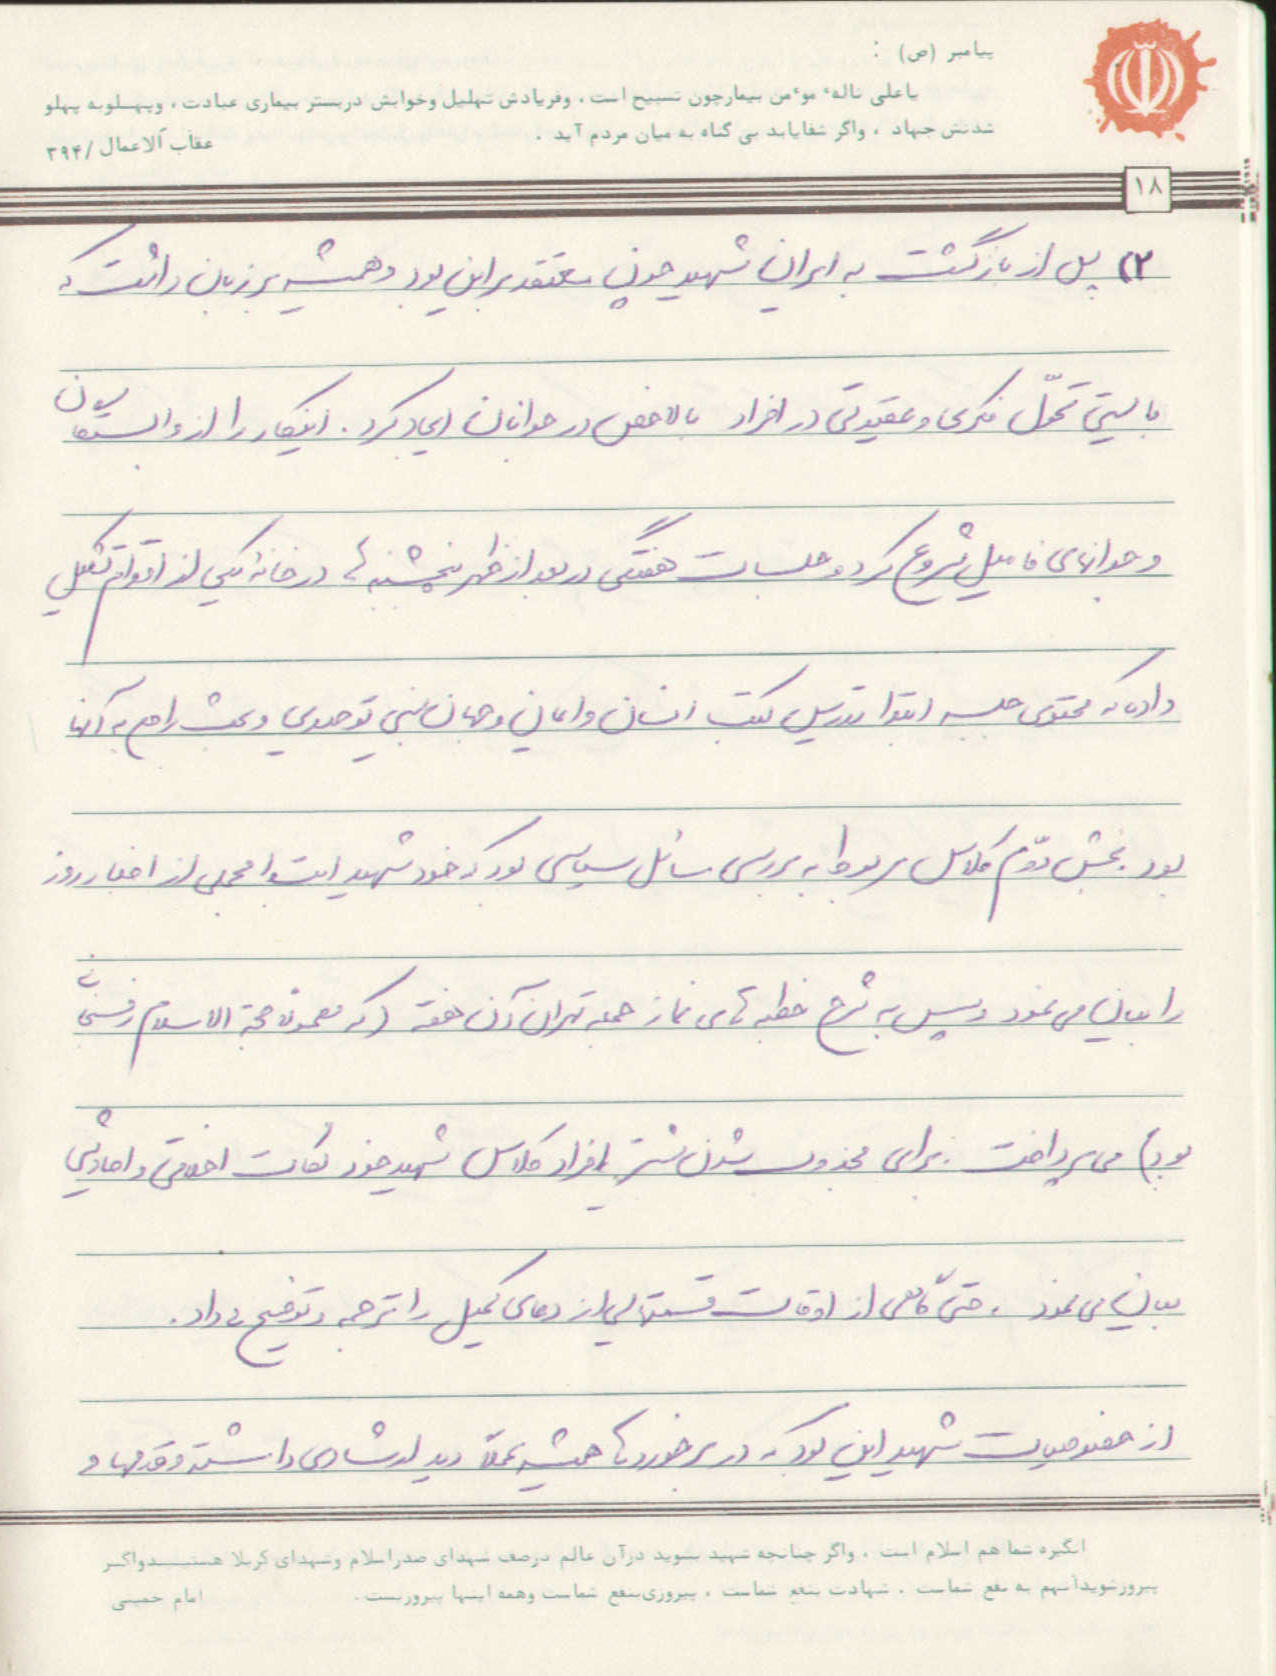 پیامبر (ص) :
یاعلی نالهٔ موٴمن بیمارچون تسبیح است ، وفریادش تهلیل وخوابش دربستر بیماری عبادت ، وپهلوبه پهلو
شدنش جهاد ، واگر شفایابد بی گناه به میان مردم آید .
عقاب الاعمال /۳۹۴
۱۸
۲) پس از بازگشت به ایران شهید چوپانی معتقد براین بود و همیشه بر زبان داشت که
بایستی تحوّل فکری و عقیدتی در افراد بالاخص در جوانان ایجاد کرد . اینکار را از وابستگان
و جوانهای فامیل شروع کرد و جلسات هفتگی در بعد از ظهر پنجشنبه ها در خانهٔ یکی از اقوام تشکیل
داد که محتوی جلسه ابتدا تدریس کتب انسان و ایمان و جهان بینی توحیدی و بحث راجع به آنها
بود . بخش دوّم کلاس مربوط به بررسی مسائل سیاسی بود که خود شهید ابتدا مجملی از اخبار روز
را بیان می نمود و سپس به شرح خطبه های نماز جمعه تهران آن هفته (که معمولاً حجة الاسلام رفسنجانی
بود) می پرداخت . برای مجذوب شدن بیشتر افراد کلاس شهید خود نکات اخلاقی و احادیثی
بیان می نمود . حتیّ گاهی از اوقات قسمتهایی از دعای کمیل را ترجمه و توضیح می داد .
از خصوصیات شهید این بود که در برخوردها همیشه عملاً دید ارشادی داشته و قدمها و
انگیزه شما هم اسلام است . واگر چنانچه شهید بشوید درآن عالم درصف شهدای صدراسلام وشهدای کربلا هستیدواگر
پیروزشویدآنهم به نفع شماست . شهادت بنفع شماست ، پیروزی بنفع شماست وهمه اینها پیروزیست .
امام خمینی